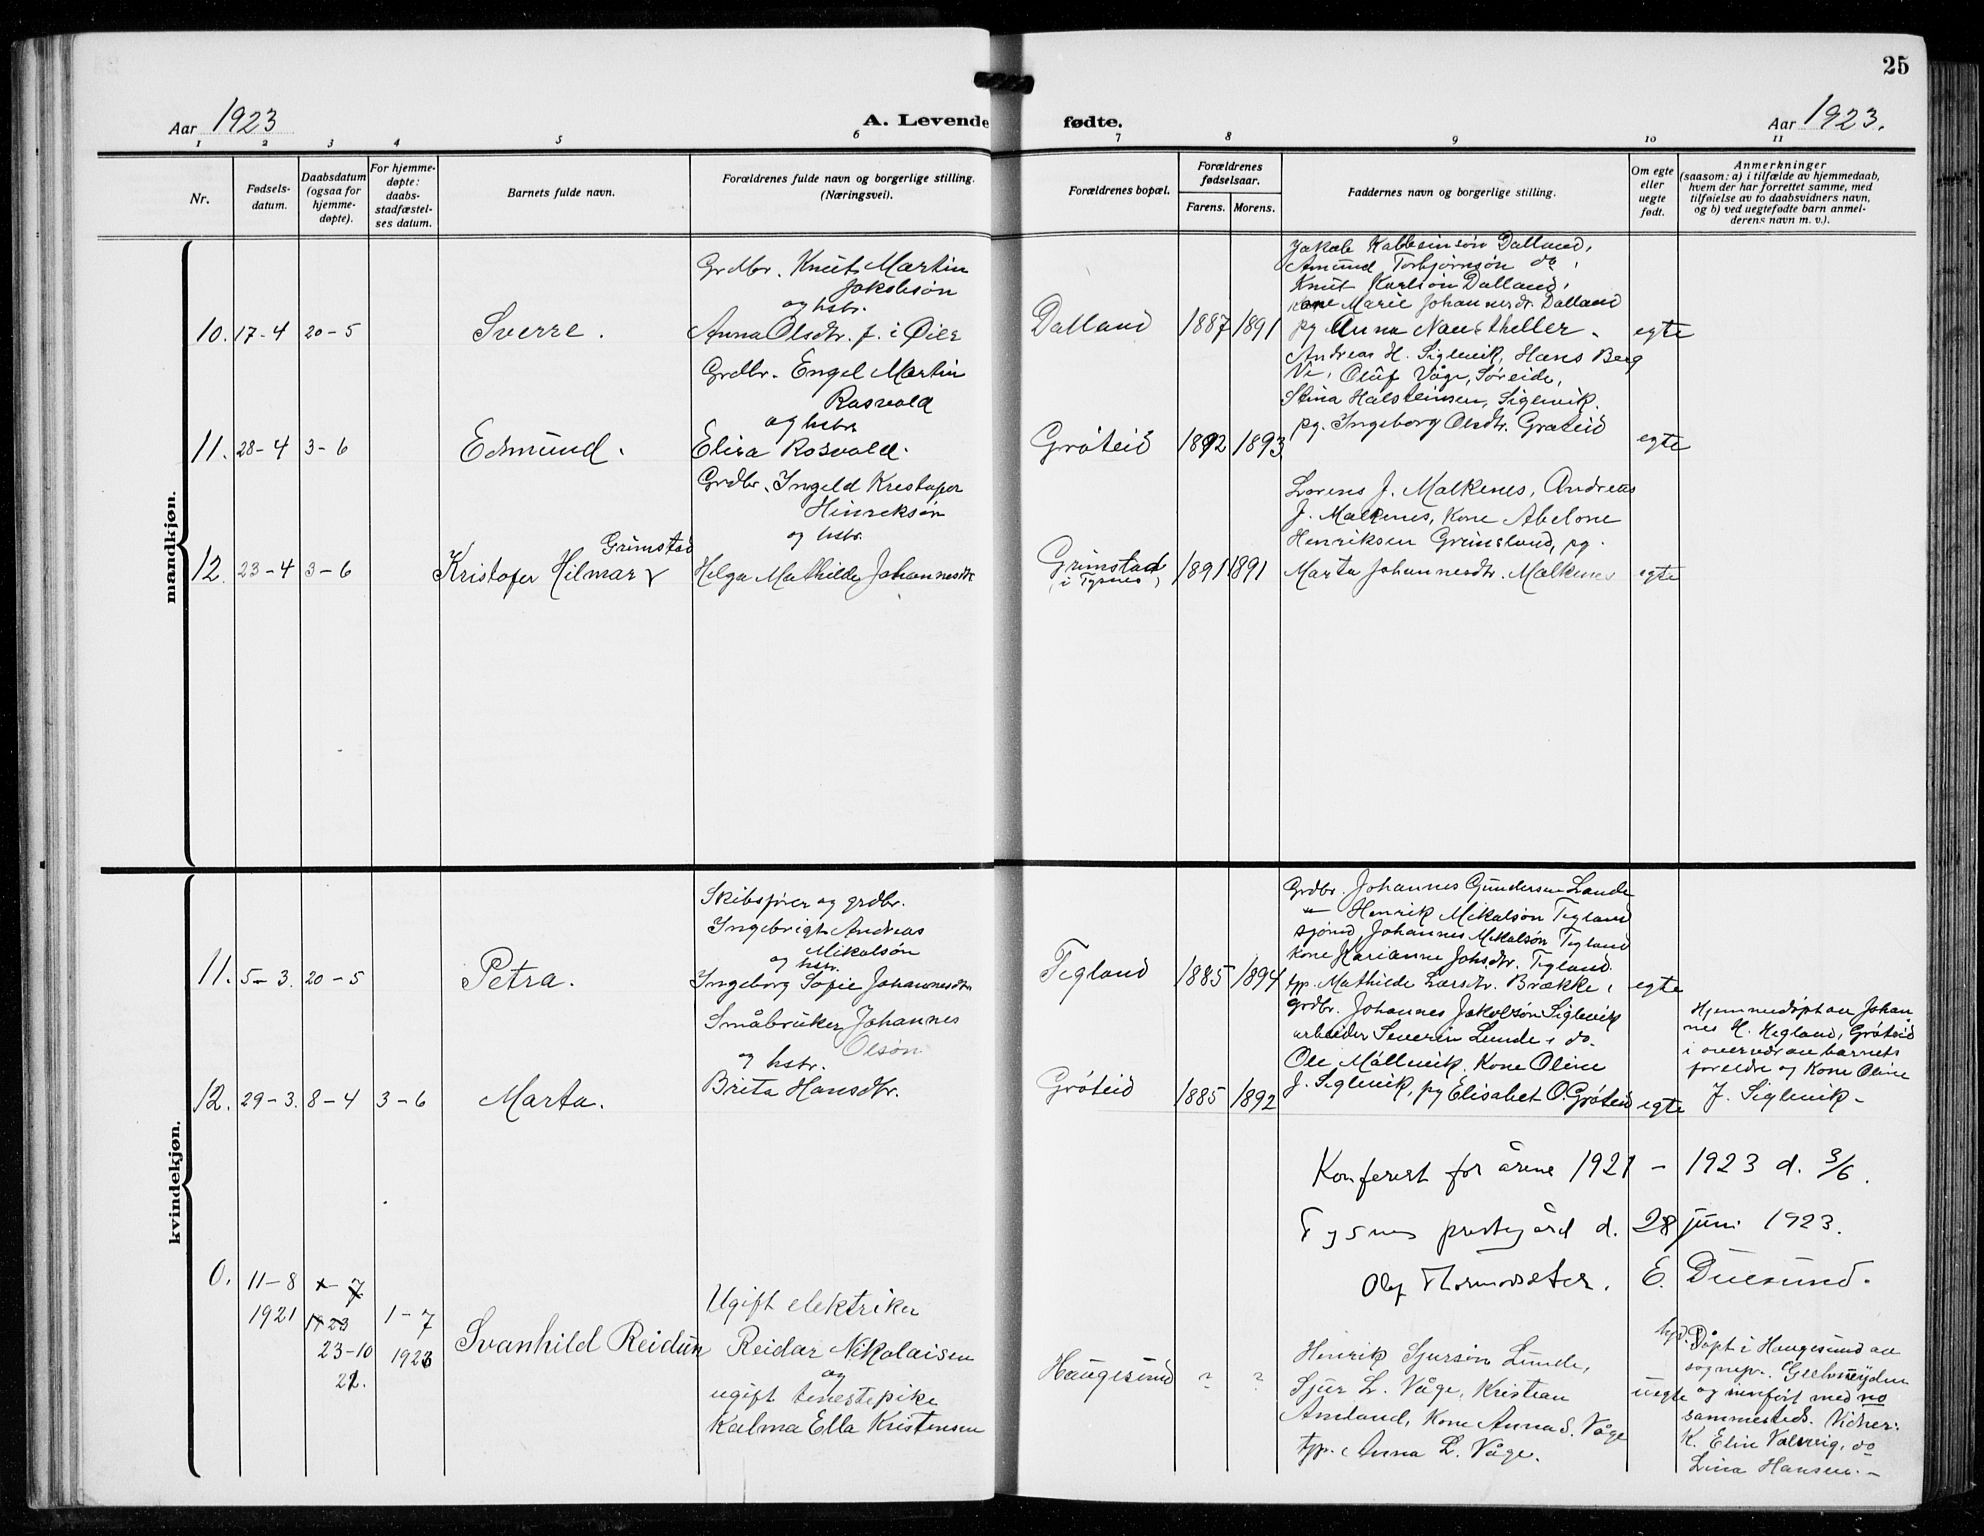 25
Aar 1923
A. Levende fødte.
Aar 1923.
1 2 3 4 5 6 7 8 9 10 11
Nr.
Fødsels-
datum.
Daabsdatum
(ogsaa for
hjemme-
døpte).
For hjemme-
døpte:
daabs-
stadfæstel-
ses datum.
Barnets fulde navn.
Forældrenes fulde navn og borgerlige stilling.
(Næringsvei).
Forældrenes bopæl.
Forældrenes
fødselsaar.
Farens. Morens.
Faddernes navn og borgerlige stilling.
Om egte
eller
uegte
født.
Anmerkninger
(saasom: a) i tilfælde av hjemmedaab,
hvem der har forrettet samme, med
tilføielse av to daabsvidners navn,
og b) ved uegtefødte barn anmel-
derens navn m. v.).
mandkjøn.
10. 17-4 20-5
Sverre.
Grdbr. Knut Martin
Jakobsøn
og hstr.
Anna Olsdtr. f. i Øier
Dalland 1887 1891
Jakob Kabbeinsøn Dalland,
Amund Torbjørnsøn do,
Knut Karlsøn Dalland,
kone Marie Johannesdr. Dalland
pg Anna Naustheller.
egte
11. 28-4 3-6
Edmund.
Grdbr. Engel Martin
Rosvold
og hstr
Elisa Rosvold.
Grøteid 1892 1893
Andreas H. Siglevik, Hans Berg
Ve, Oluf Våge, Søreide,
Stina Halsteinsen, Siglevik.
pg. Ingeborg Olsdtr. Grøteid
egte
12. 23-4 3-6
Grimstad
Kristofer Hilmar v
Grdbr. Ingeld Kristofer
Hinreksøn
og hstr.
Helga Mathilde Johannesdtr
Grimstad
i Tysnes, 1891 1891
Lorens J. Malkenes, Andreas
J. Malkenes, Kone Abelone
Henriksen Grimsland, pg.
Marta Johannesdtr. Malkenes
egte
kvindekjøn.
11. 5-3. 20-5
Petra.
Skibsfører og grdbr.
Ingebrigt Andreas
Mikalsøn
og hstr.
Ingeborg Sofie Johannesdtr
Tegland 1885 1894
Grdbr. Johannes Gundersen Lande
" Henrik Mikalsøn Tegland
sjømd, Johannes Mikalsøn Tegland
Kone Karianne Johsdtr. Tegland.
tpp. Mathilde Larsdtr. Brække,
egte
12. 29-3. 8-4 3-6
Marta.
Småbruker Johannes
Olsøn
og hstr.
Brita Hansdtr.
Grøteid 1885 1892
Grdbr. Johannes Jakobsøn Siglevik
arbeider Severin Lunde, do.
Ole Mållevik, Kone Oline
J. Siglevik, pg Elisabet O. Grøteid
egte
Hjemmedøpt av Johan
nes H. Hegland, Grøteid
i overvær av barnets
foreldre og Kone Oline
J. Siglevik-
Konferert for årene 1921 - 1923 d. 3/6.
Tysnes prestegård d. 28 juni 1923.
Olaf Thormodsæter. E. Duesund.
0. 11-8
1921
1923
23-10
21.
1-7
1923
Svanhild Reidun
Ugift elektriker
Reidar Nikolaisen
og
ugift tenestepike
Kalma Ella Kristensen
Haugesund ? ?
Henrik Sjursøn Lunde,
Sjur L. Våge, Kristian
Amland, Kone Anna S. Våge
tpp. Anna L. Våge.
uegte
Døpt i Haugesund av
sognepr. Geelmuyden
og innført med no
sammesteds. Vidner:
K. Elin Valevig, do
Lina Hansen.-